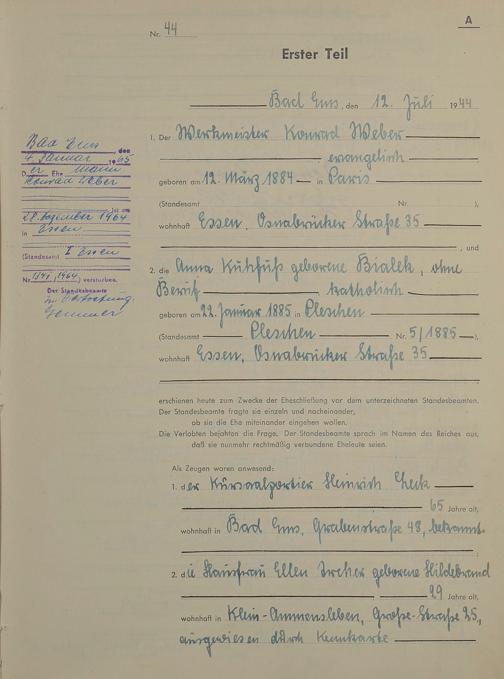 A
Nr. 44
Erster Teil
Bad Ems, den 12. Juli 1944
1. Der Werkmeister Konrad Weber
evangelisch
geboren am 12. März 1884 in Paris
(Standesamt Nr. ),
wohnhaft Essen, Osnabrücker Straße 35
, und
2. die Anna Kuhfuß geborene Bialek, ohne
Beruf katholisch
geboren am 22. Januar 1885 in Pleschen
(Standesamt Pleschen Nr. 5/1885),
wohnhaft Essen, Osnabrücker Straße 35
erschienen heute zum Zwecke der Eheschließung vor dem unterzeichneten Standesbeamten.
Der Standesbeamte fragte sie einzeln und nacheinander,
ob sie die Ehe miteinander eingehen wollen.
Die Verlobten bejahten die Frage. Der Standesbeamte sprach im Namen des Reiches aus,
daß sie nunmehr rechtmäßig verbundene Eheleute seien.
Als Zeugen waren anwesend:
1. der Kursaalportier Heinrich
65 Jahre alt,
wohnhaft in Bad Ems, Grabenstraße 48, bekannt
;
2. die Hausfrau Ellen geborene Hildebrand
29 Jahre alt,
wohnhaft in Klein-Ammensleben, Große-Straße 25,
ausgewiesen durch Kennkarte
Bad Ems den
4. Januar 1965
Der Ehemann
Konrad Weber
ist am
28. Dezember 1964
in Essen
(Standesamt I Essen
Nr. /1964) verstorben.
Der Standesbeamte
In Vertretung